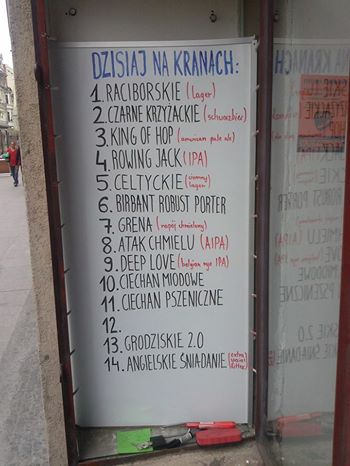 DZISIAJ NA KRANACH:
1. RACIBORSKIE (lager)
2. CZARNE KRZYŻACKIE (schwarzbier)
3. KING OF HOP (american pale ale)
4. ROWING JACK (IPA)
5. CELTYCKIE (ciemny lager)
6. BIRBANT ROBUST PORTER
7. GRENA (napój chmielowy)
8. ATAK CHMIELU (AIPA)
9. DEEP LOVE (belgian rye IPA)
10. CIECHAN MIODOWE
11. CIECHAN PSZENICZNE
12.
13. GRODZISKIE 2.0
14. ANGIELSKIE ŚNIADANIE (extra special bitter)